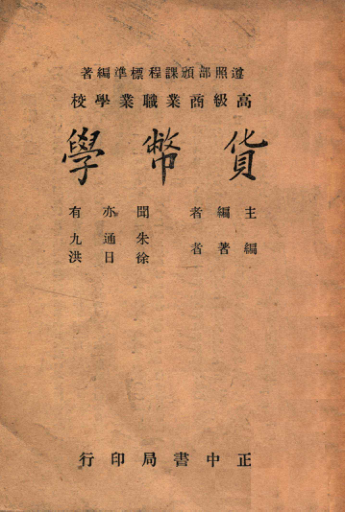 遵照部頒課程標準編著
高級商業職業學校
貨幣學
主編者 聞亦有
編著者 朱通九
徐日洪
正中書局印行